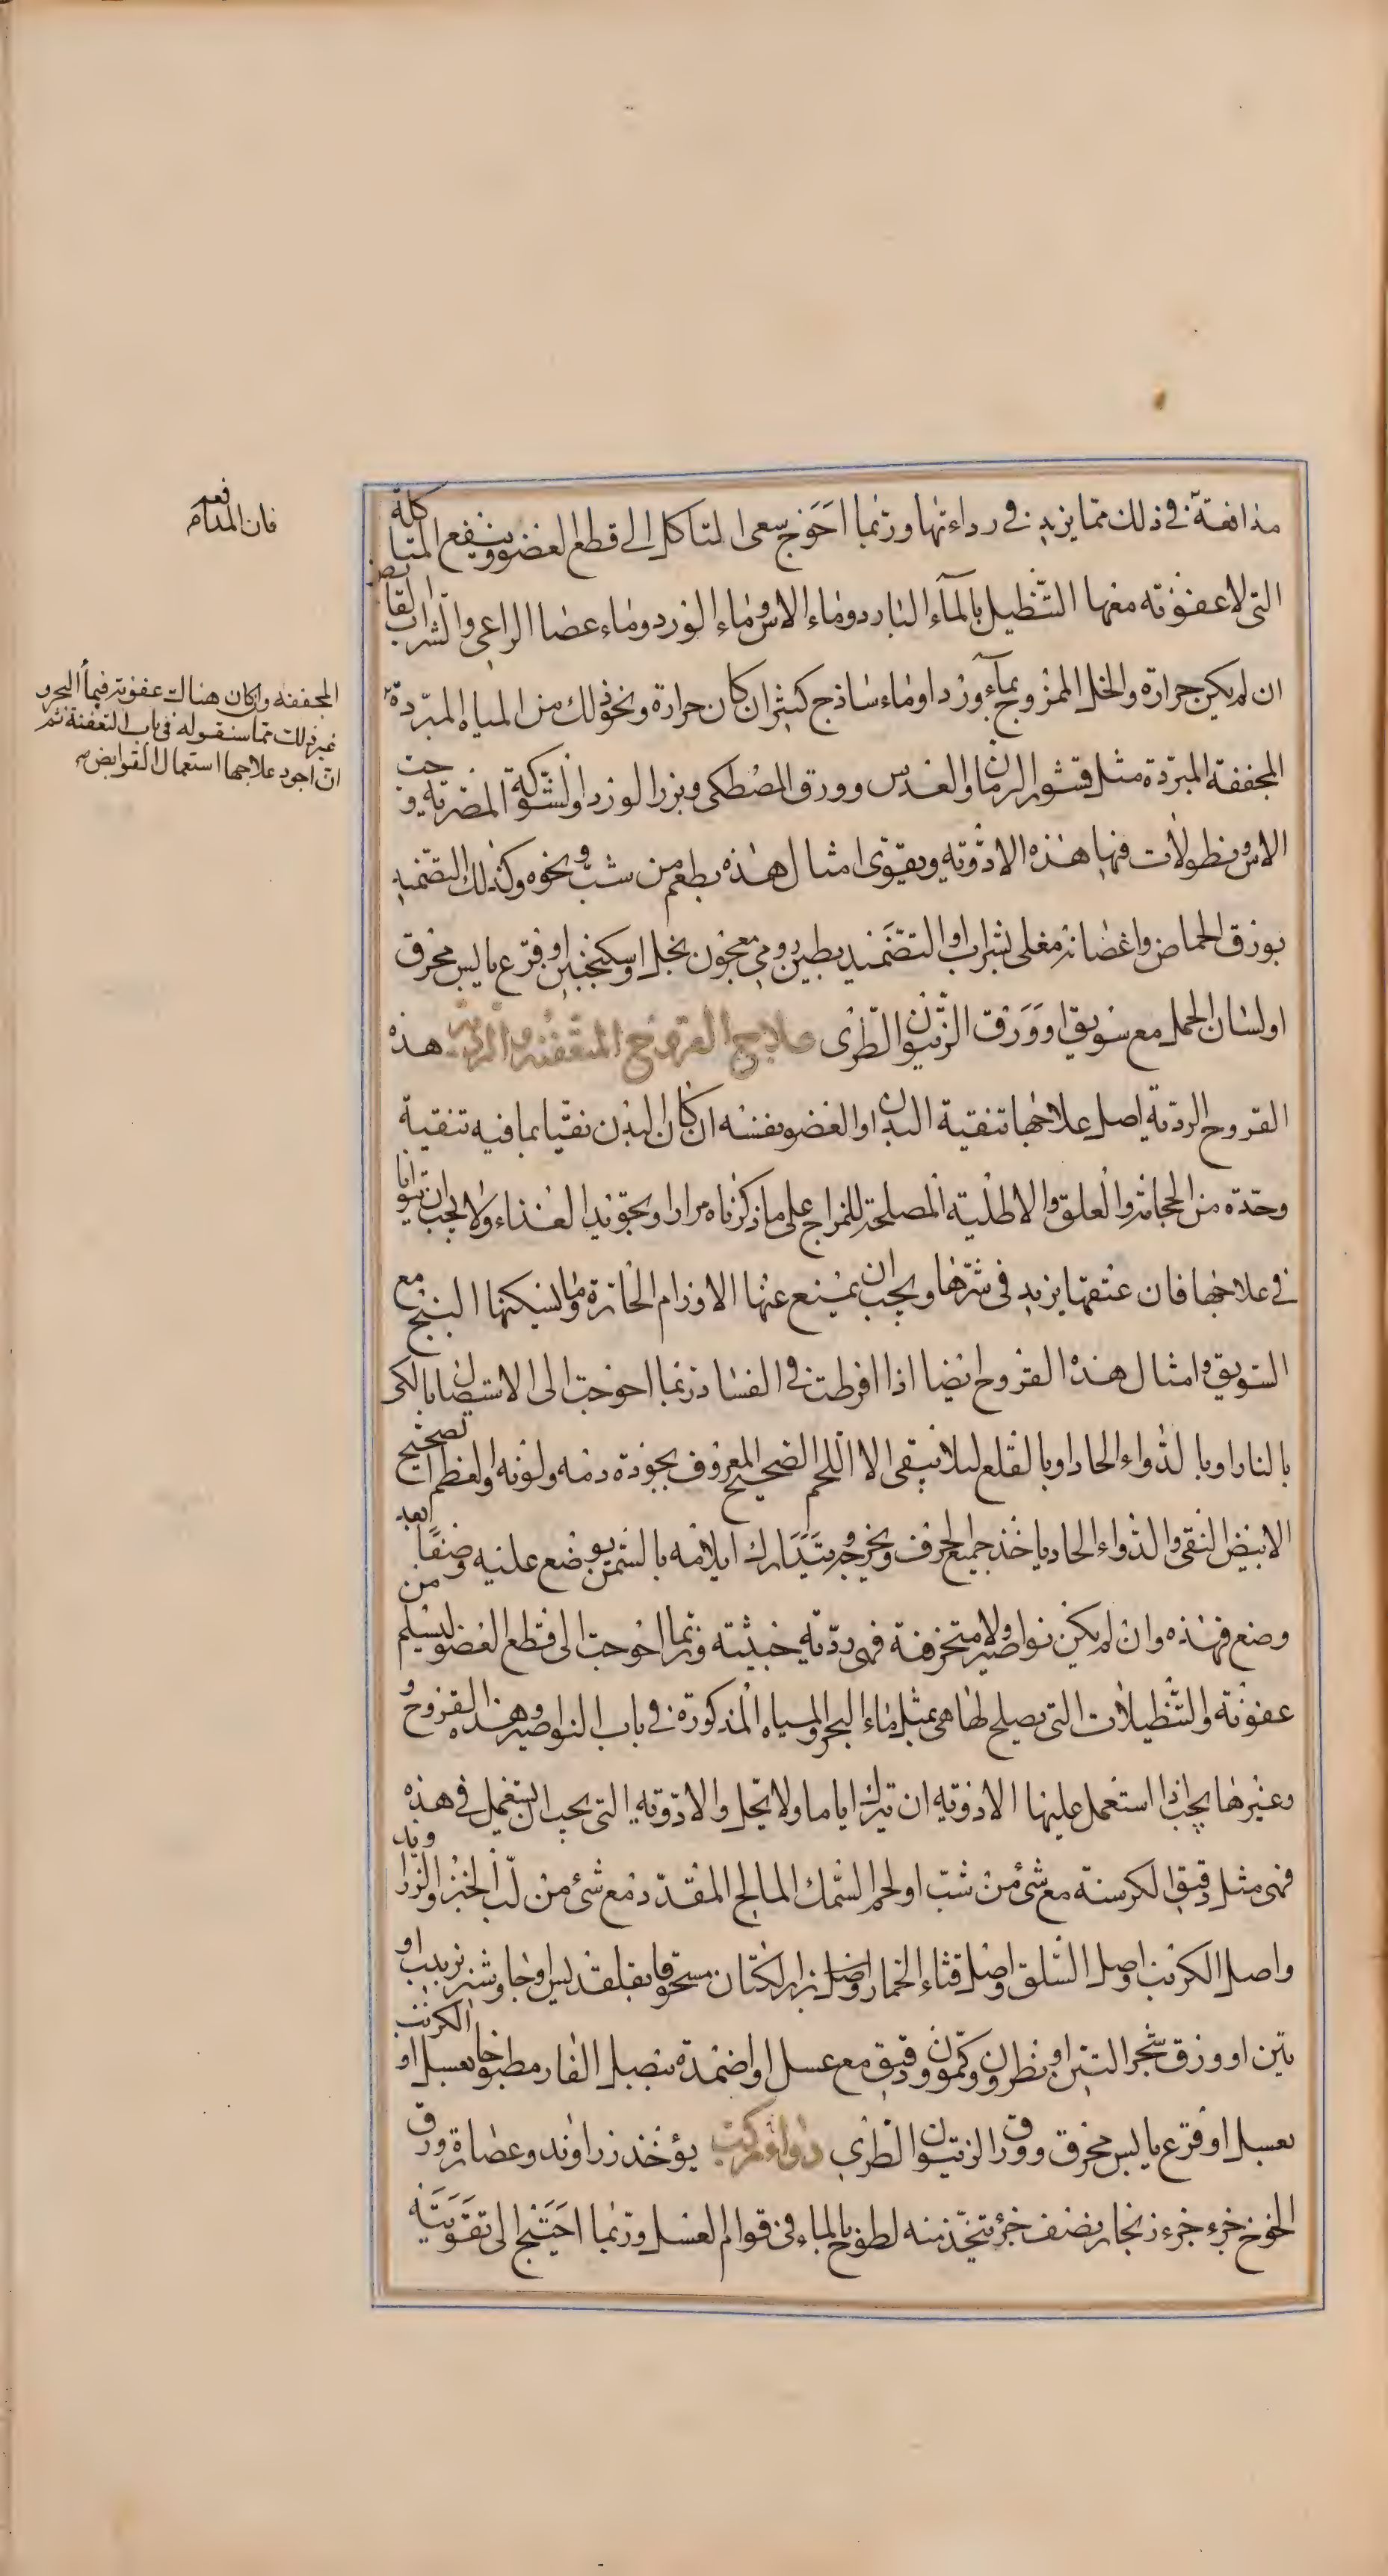 مدافعة في ذلك مما يزيد في رداءتها وربما احوج سعى التاكل الى قطع العضو وينفع المتاكلة
التى لا عفونة معها التنطيل بالماء البارد وماء الاس وماء الورد وماء عصا الراعى والشراب القابض
ان لم يكن حرارة والخل الممزوج بماء ورد او ماء ساذج كثير ان كان حرارة ونحو ذلك من المياه المبردة
المجففة المبردة مثل قشور الرمان والعدس وورق المصطكى وبزر الورد او الشوكة المصرية وحب
الاس ونطولات فيها هذه الادوية ويقوى امثال هذه بطعم من شب ونحوه وكذلك التضميد
بورق الحماض واغصانه مغلى بشراب او التضميد بطين رومى معجون بخل او سكنجبين او قرع يابس محرق
او لسان الحمل مع سويق او ورق الزيتون الطرى علاج القروح المتعفنة والردية هذه
القروح الردية اصل علاجها تنقية البدن او العضو نفسه ان كان البدن نقيا بما فيه تنقية
وحدة من الحجامة والعلق والاطلية المصلحة للمزاج على ما ذكرناه مرارا وبتجويد الغذاء ولا يجب ان يتوانا
فى علاجها فان عتقها يزيد فى شرها ويجب ان يمنع عنها الاورام الحارة ومما يسكنها البنج مع
السويق وامثال هذه القروح ايضا اذا افرطت فى الفساد ربما احوجت الى الاستيصال بالكى
بالنار او بالدواء الحاد او بالقلع ليلا يبقى الا اللحم الصحيح المعروف بجودة دمه ولونه والعظم الصحيح
الابيض النقى والدواء الحاد ياخذ جميع الحرف ويخرجه ويتدارك ايلامه بالسمن يوضع عليه وضعا بعد
وضع فهذه وان لم يكن نواصير ولا متحرفة فهى ردية خبيثة وربما احوجت الى قطع العضو ليسلم من
عفونة والتنطيلات التى يصلح لها هى بمثل ماء البحر والمياه المذكورة فى باب النواصير وهذه القروح و
وغيرها يجب اذا استعمل عليها الادوية ان تترك اياما ولا تحل والادوية التى يجب ان يستعمل فى هذه
فهى مثل دقيق الكرسنة مع شئ من شب او لحم السمك المالح المقدد مع شئ من لب الخبز والزراوند
واصل الكرنب واصل السلق واصل قثاء الحمار واصل بزر الكتان مسحوقا بقلقديس او جاوشير بزبيب او
بتين او ورق شجر التين او نطرون وكمون ودقيق مع عسل او اضمدة ببصل الفار مطبوخا بعسل او الكرنب
بعسل او قرع يابس محرق وورق الزيتون الطرى دواء مركب يؤخذ زراوند وعصارة ورق
الخوخ جزء جزء زنجار نصف جزء يتخذ منه لطوخ بالماء فى قوام العسل وربما احتيج الى تقويته
فان المدافعة
المجففة وان كان هناك عفونة فبماء البحر و
غير ذلك مما سنقوله فى باب المتعفنة ثم
ان اجود علاجها استعمال القوابض